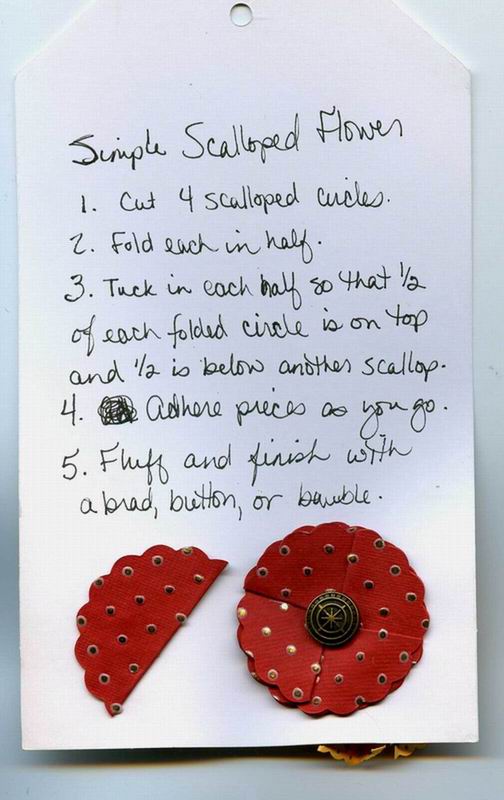 Simple Scalloped Flower
1. Cut 4 scalloped circles.
2. Fold each in half.
3. Tuck in each half so that 1/2
of each folded circle is on top
and 1/2 is below another scallop.
4. Adhere pieces as you go.
5. Fluff and finish with
a brad, button, or bauble.